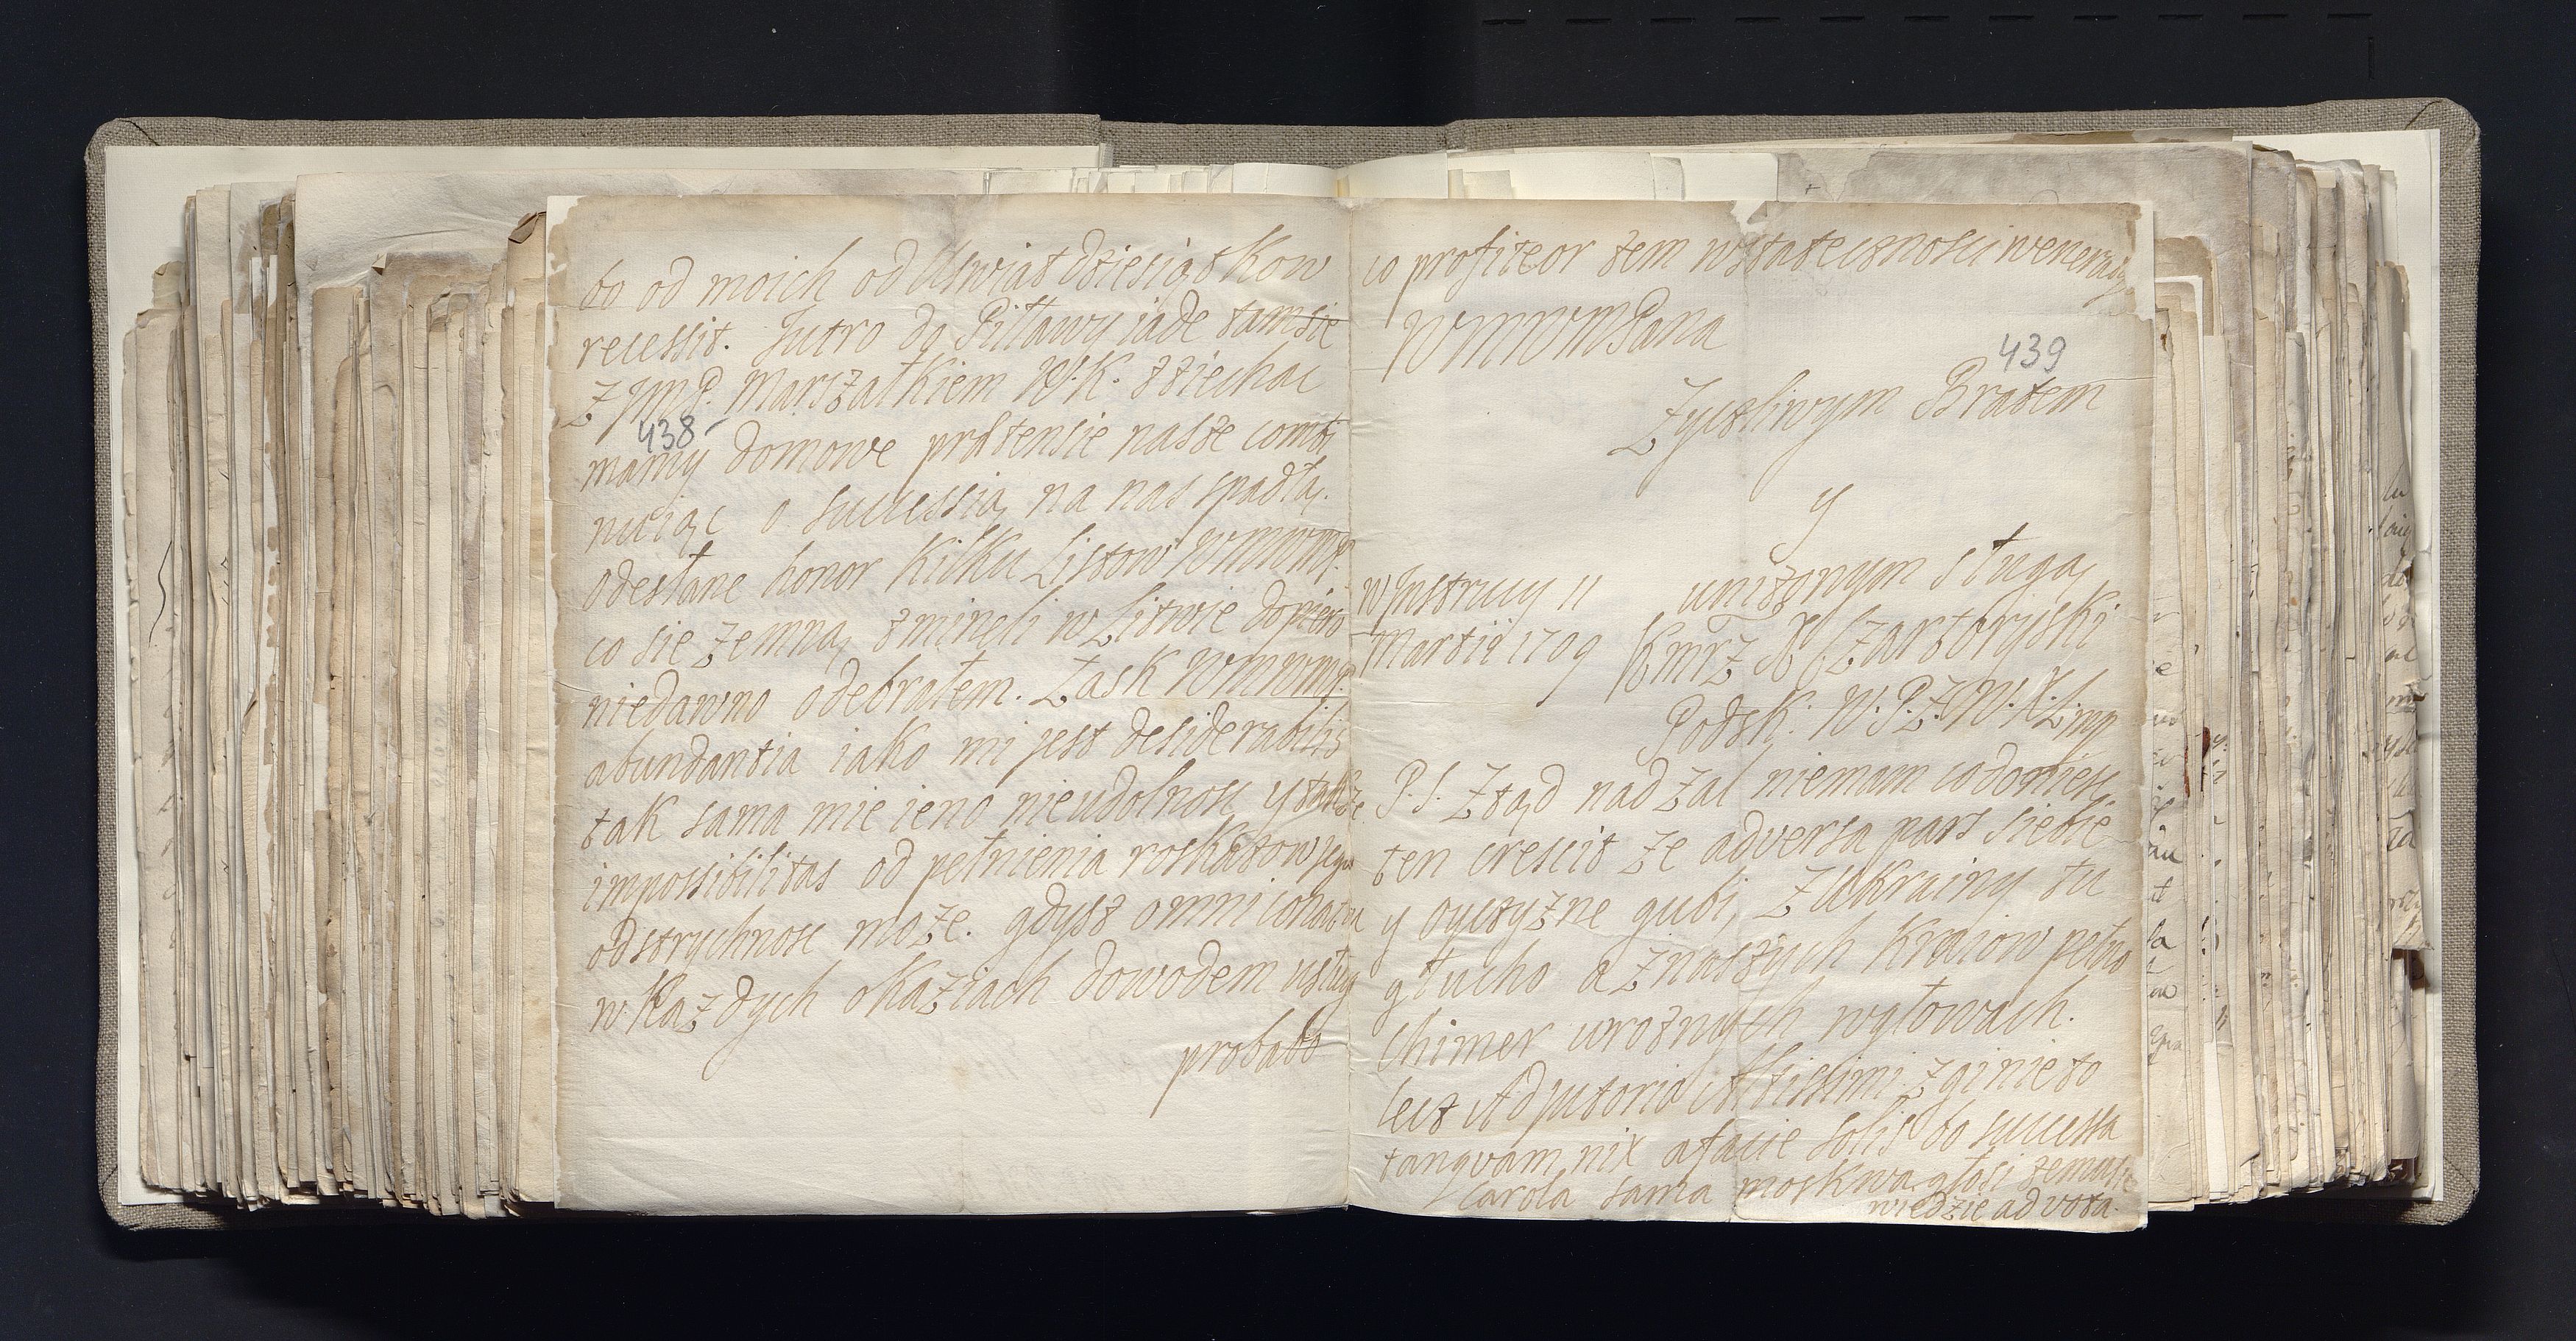 bo od moich od Uswiat dziesiątkow
recessit. Jutro do Pillawy iade tam sie
z JmP. Marszałkiem W.K. zziechac
438
mamy domowe prætensie nasze combi
nuiąc o successią na nas spadłą.
odesłane honor kilku Listow WMWMP.
co sie zemną zmineli w Litwie dopiero
niedawno odebrałem. Łask WMWMP.
abundantia iako mi jest desiderabilis
tak sama mie ieno nieudolnosc y
impossibilitas od pełnienia roskazow jego
odstrychnosc moze. gdysz omni conatu
w kazdych okaziach dowodem usług
probabo
co profiteor zem wstatecznosci
WMWMPana
439
Zyczliwym Bratem
y
unizonym sługą
w Instrucy 11
Martii 1709
Kmrz X Czartoryski
Podsk: W.P.Z.W.X.L mp
P.S. Ztąd nad zal niemam co doniesc
ten crescit ze adversa pars siebie
y oyczyzne gubi, z Ukrainy tu
głucho a z naszych kraiow pełno
Chimer uroznych wyłowach.
lecz Adjutorio Altissimi zginie to
tanqvam nix afacie solis bo successa
Carola sama moskwa głosi ze mu sie
wiedzie ad vota.